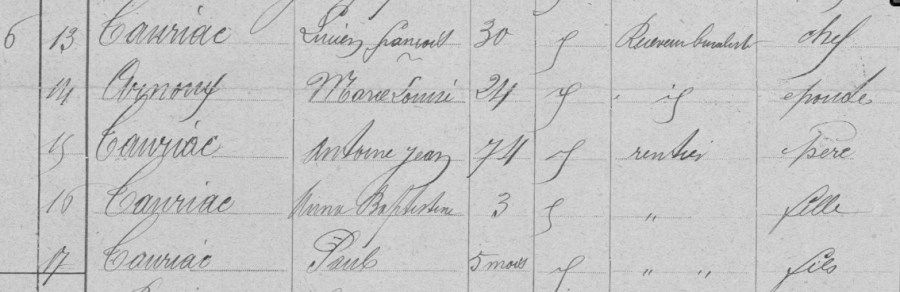 6 13 Cauriac Lucien françois 30 f Receveur buraliste chef
14 Arnoux Marie Louise 24 f " id épouse
15 Cauriac Antoine jean 74 f rentier père
16 Cauriac Anna Baptistine 3 f " fille
17 Cauriac Paul 5 mois f " " fils